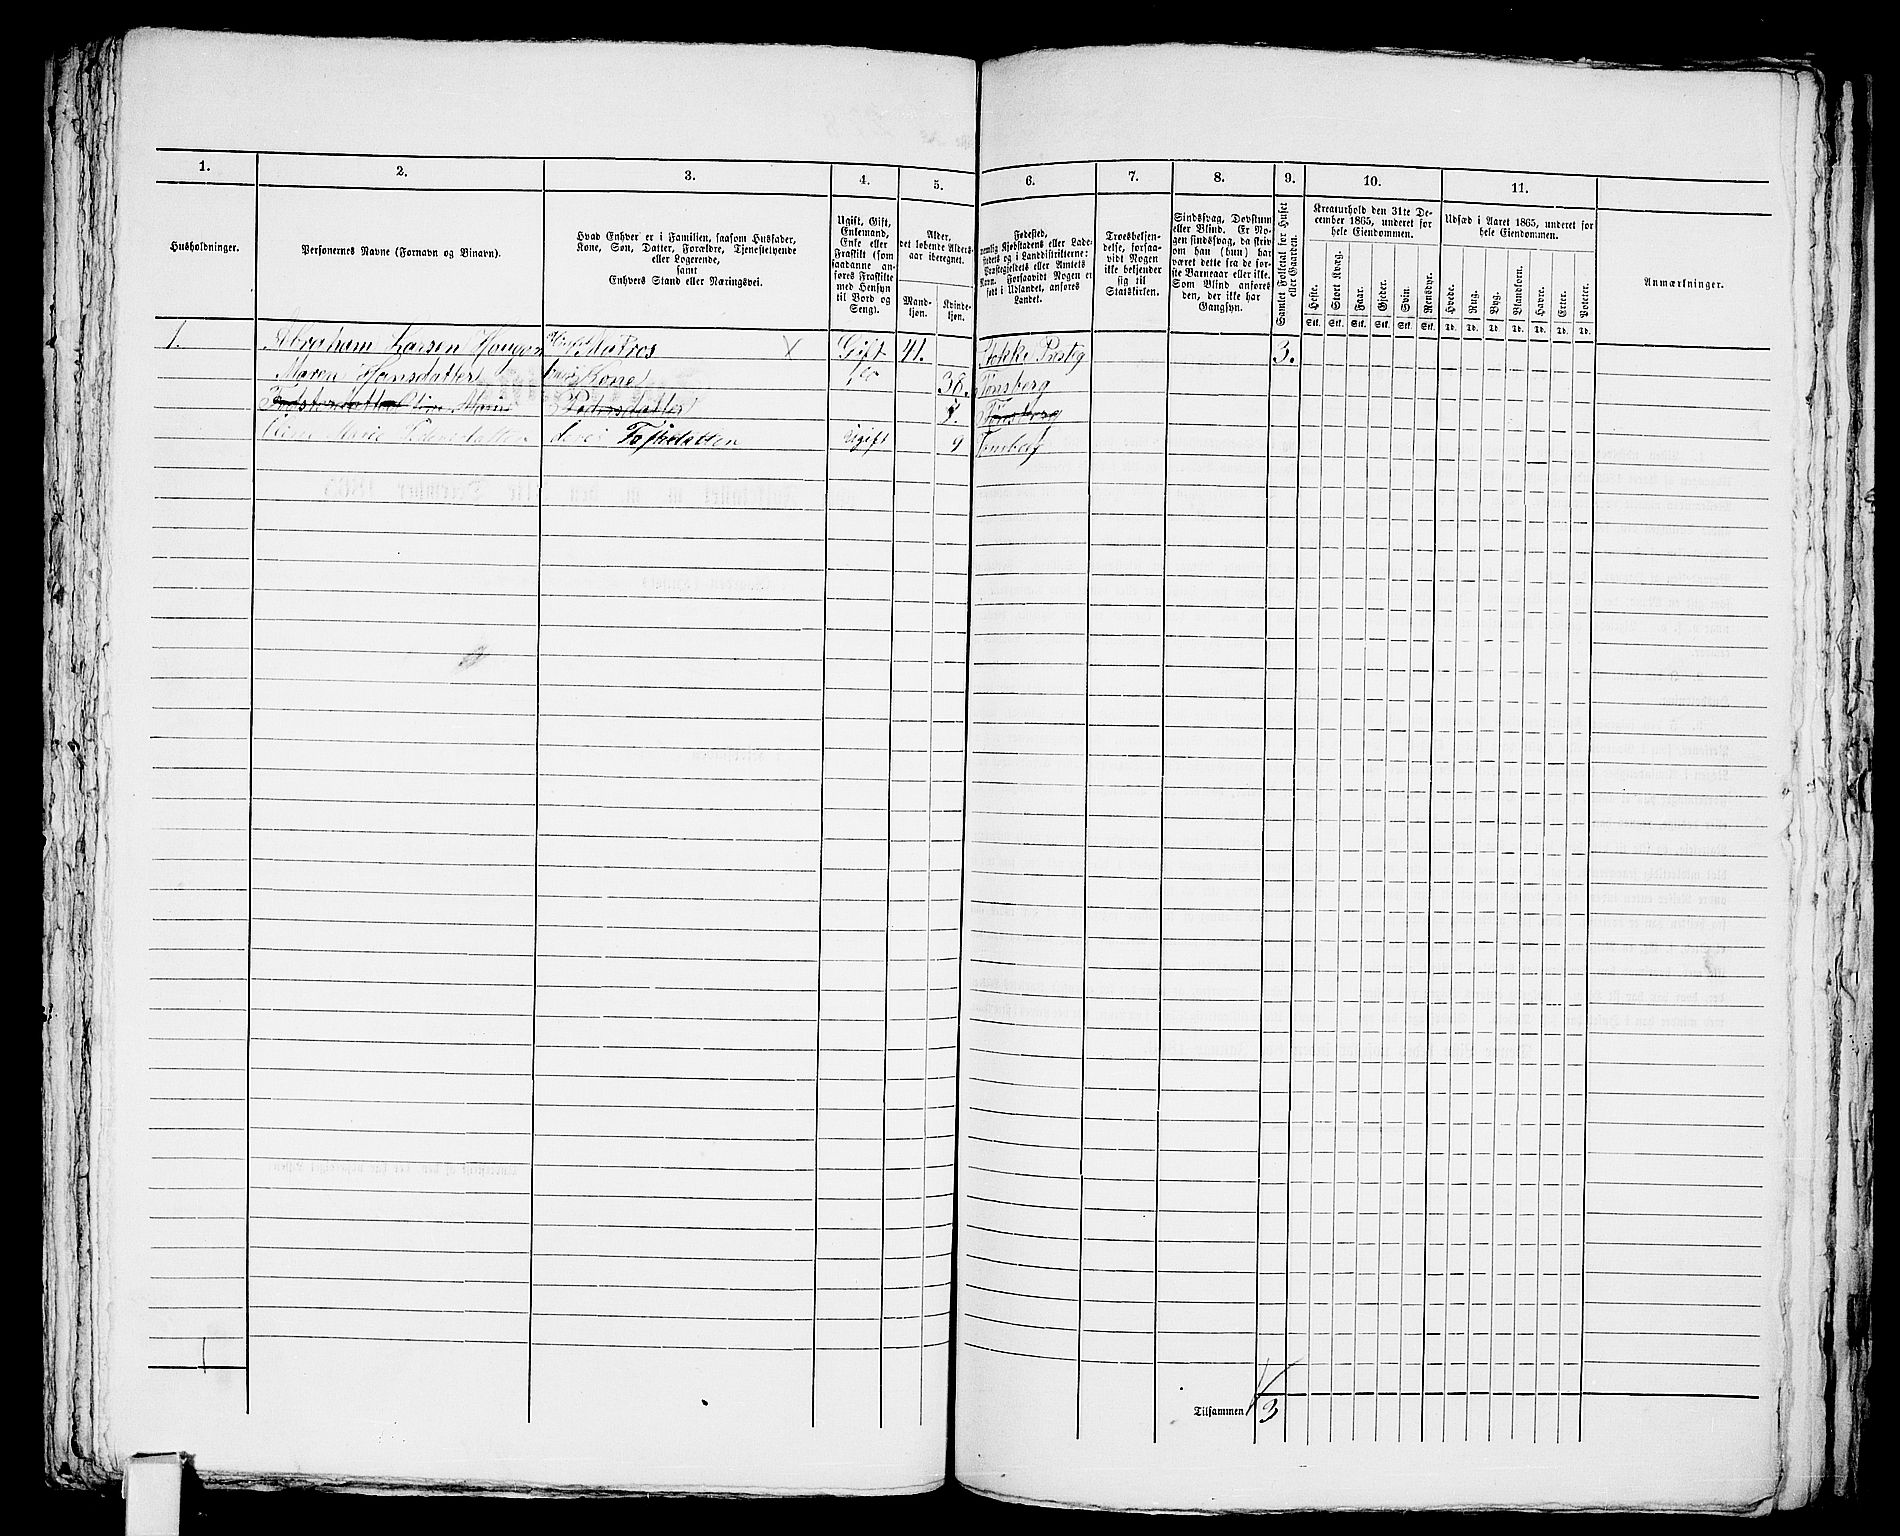 1. 2. 3. 4. 5. 6. 7. 8. 9. 10. 11.
Husholdninger.
Personernes Navne (Fornavn og Binavn).
Hvad Enhver er i Familien, saasom Husfader,
Kone, Søn, Datter, Forældre, Tjenestetyende
eller Logerende,
samt
Enhvers Stand eller Næringsvei.
Ugift, Gift,
Enkemand,
Enke eller
Fraskilt (som
saadanne an-
føres Fraskilte
med Hensyn
til Bord og
Seng).
Alder,
det løbende Alders-
aar iberegnet.
Mand-
kjøn.
Kvinde-
kjøn.
Fødested,
nemlig Kjøbstadens eller Lade-
stedets og i Landdistrikterne:
Præstegjeldets eller Amtets
Navn. Forsaavidt Nogen er
født i Udlandet, anføres
Landet.
Troesbekjen-
delse, forsaa-
vidt Nogen
ikke bekjender
sig til
Statskirken.
Sindssvag, Døvstum
eller Blind. Er No-
gen sindssvag, da skriv
om han (hun) har
været dette fra de før-
ste Barneaar eller ikke.
Som Blind anføres
den, der ikke har
Gangsyn.
Samlet Folketal for Huset
eller Gaarden.
Kreaturhold den 31te De-
cember 1865, underet for
hele Eiendommen.
Heste.
Stort Kvæg.
Faar.
Gjeder.
Svin.
Rensdyr.
Stk. Stk. Stk. Stk. Stk. Stk.
Udsæd i Aaret 1865, underet for
hele Eiendommen.
Hvede.
Rug.
Byg.
Blandkorn.
Havre.
Erter.
Poteter.
Td. Td. Td. Td. Td. Td. Td.
Anmærkninger.
1. Abraham Larsen Haugen Matros X Gift 41. Stokke Prestg 3.
Maren Hansdatter Kone 38. Tønsberg
Pedersdatter Tønsberg
Marie Pedersdatter deres ugift 9 Tønsberg
Tilsammen 3